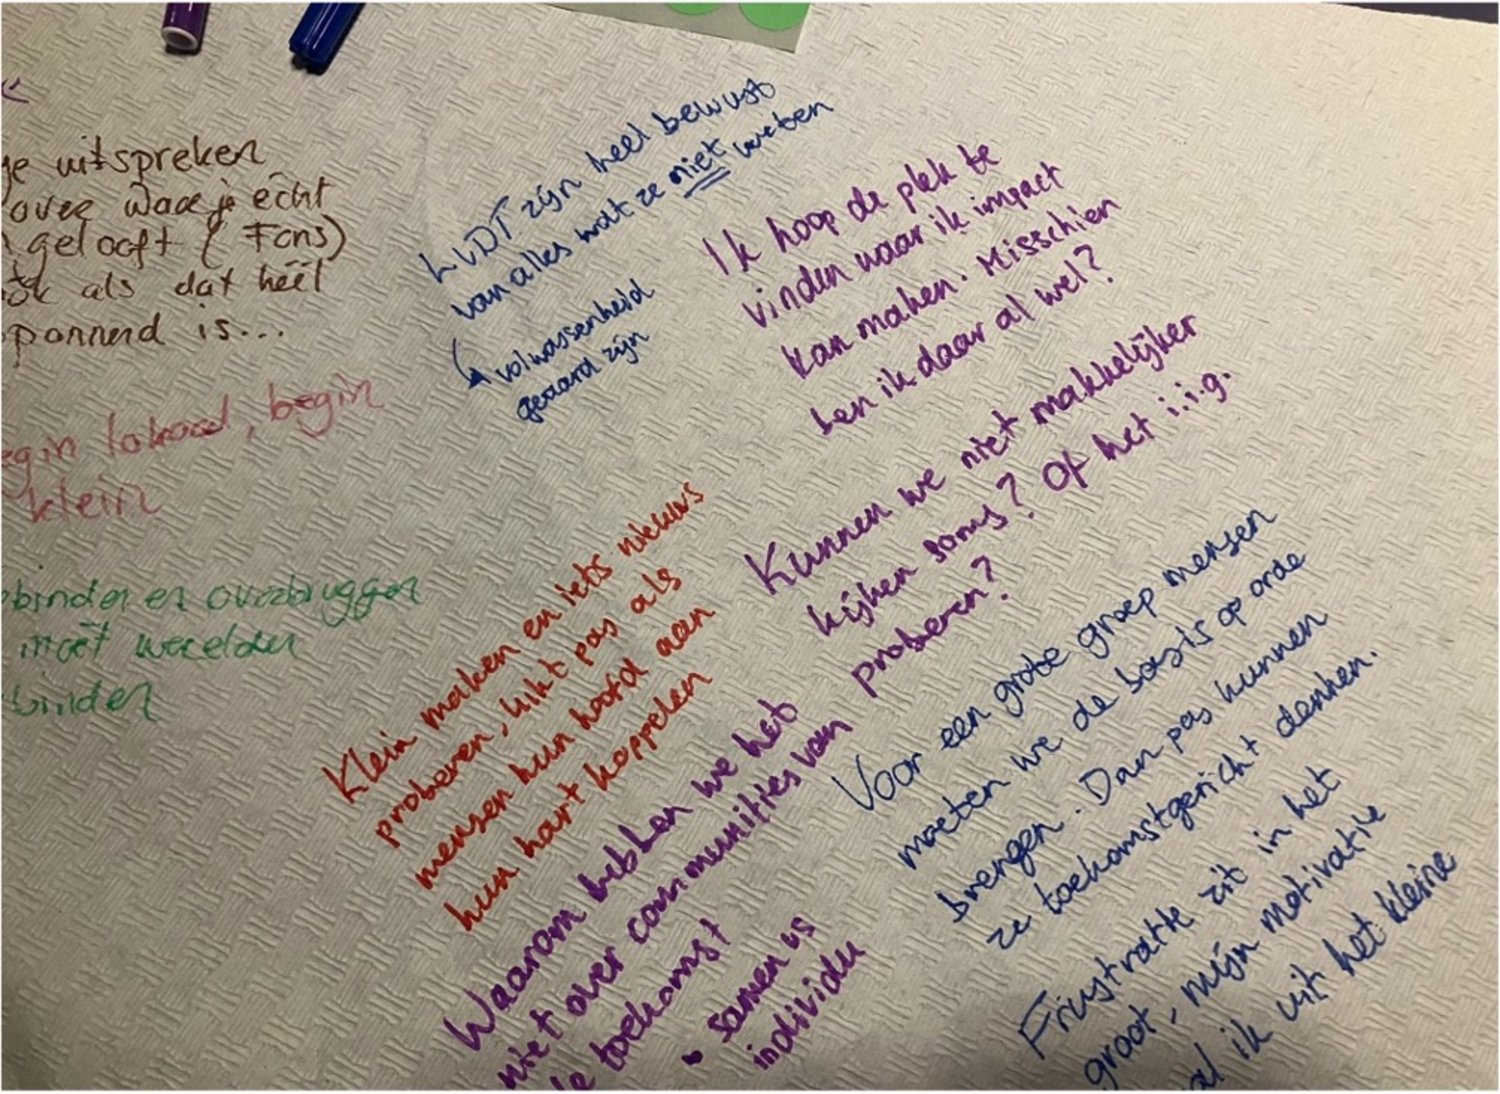 je uitspreken
over waar je echt
gelooft (Fons)
als dat héél
spannend is...
begin lokaal, begin
klein
binden en overbruggen
moet werelden
binden
LVDT zijn heel bewust
van alles wat ze niet weten
volwassenheid
geaard zijn
Ik hoop de plek te
vinden waar ik impact
kan maken. Misschien
ben ik daar al wel?
Kunnen we niet makkelijker
kijken soms? Of het i.i.g.
proberen?
Klein maken en iets nieuws
proberen, lukt pas als
mensen hun hoofd aan
hun hart koppelen
Waarom hebben we het
niet over communities van
de toekomst
samen vs
individu
Voor een grote groep mensen
moeten we de basis op orde
brengen. Dan pas kunnen
ze toekomstgericht denken.
Frustratie zit in het
groot, mijn motivatie
al ik uit het kleine